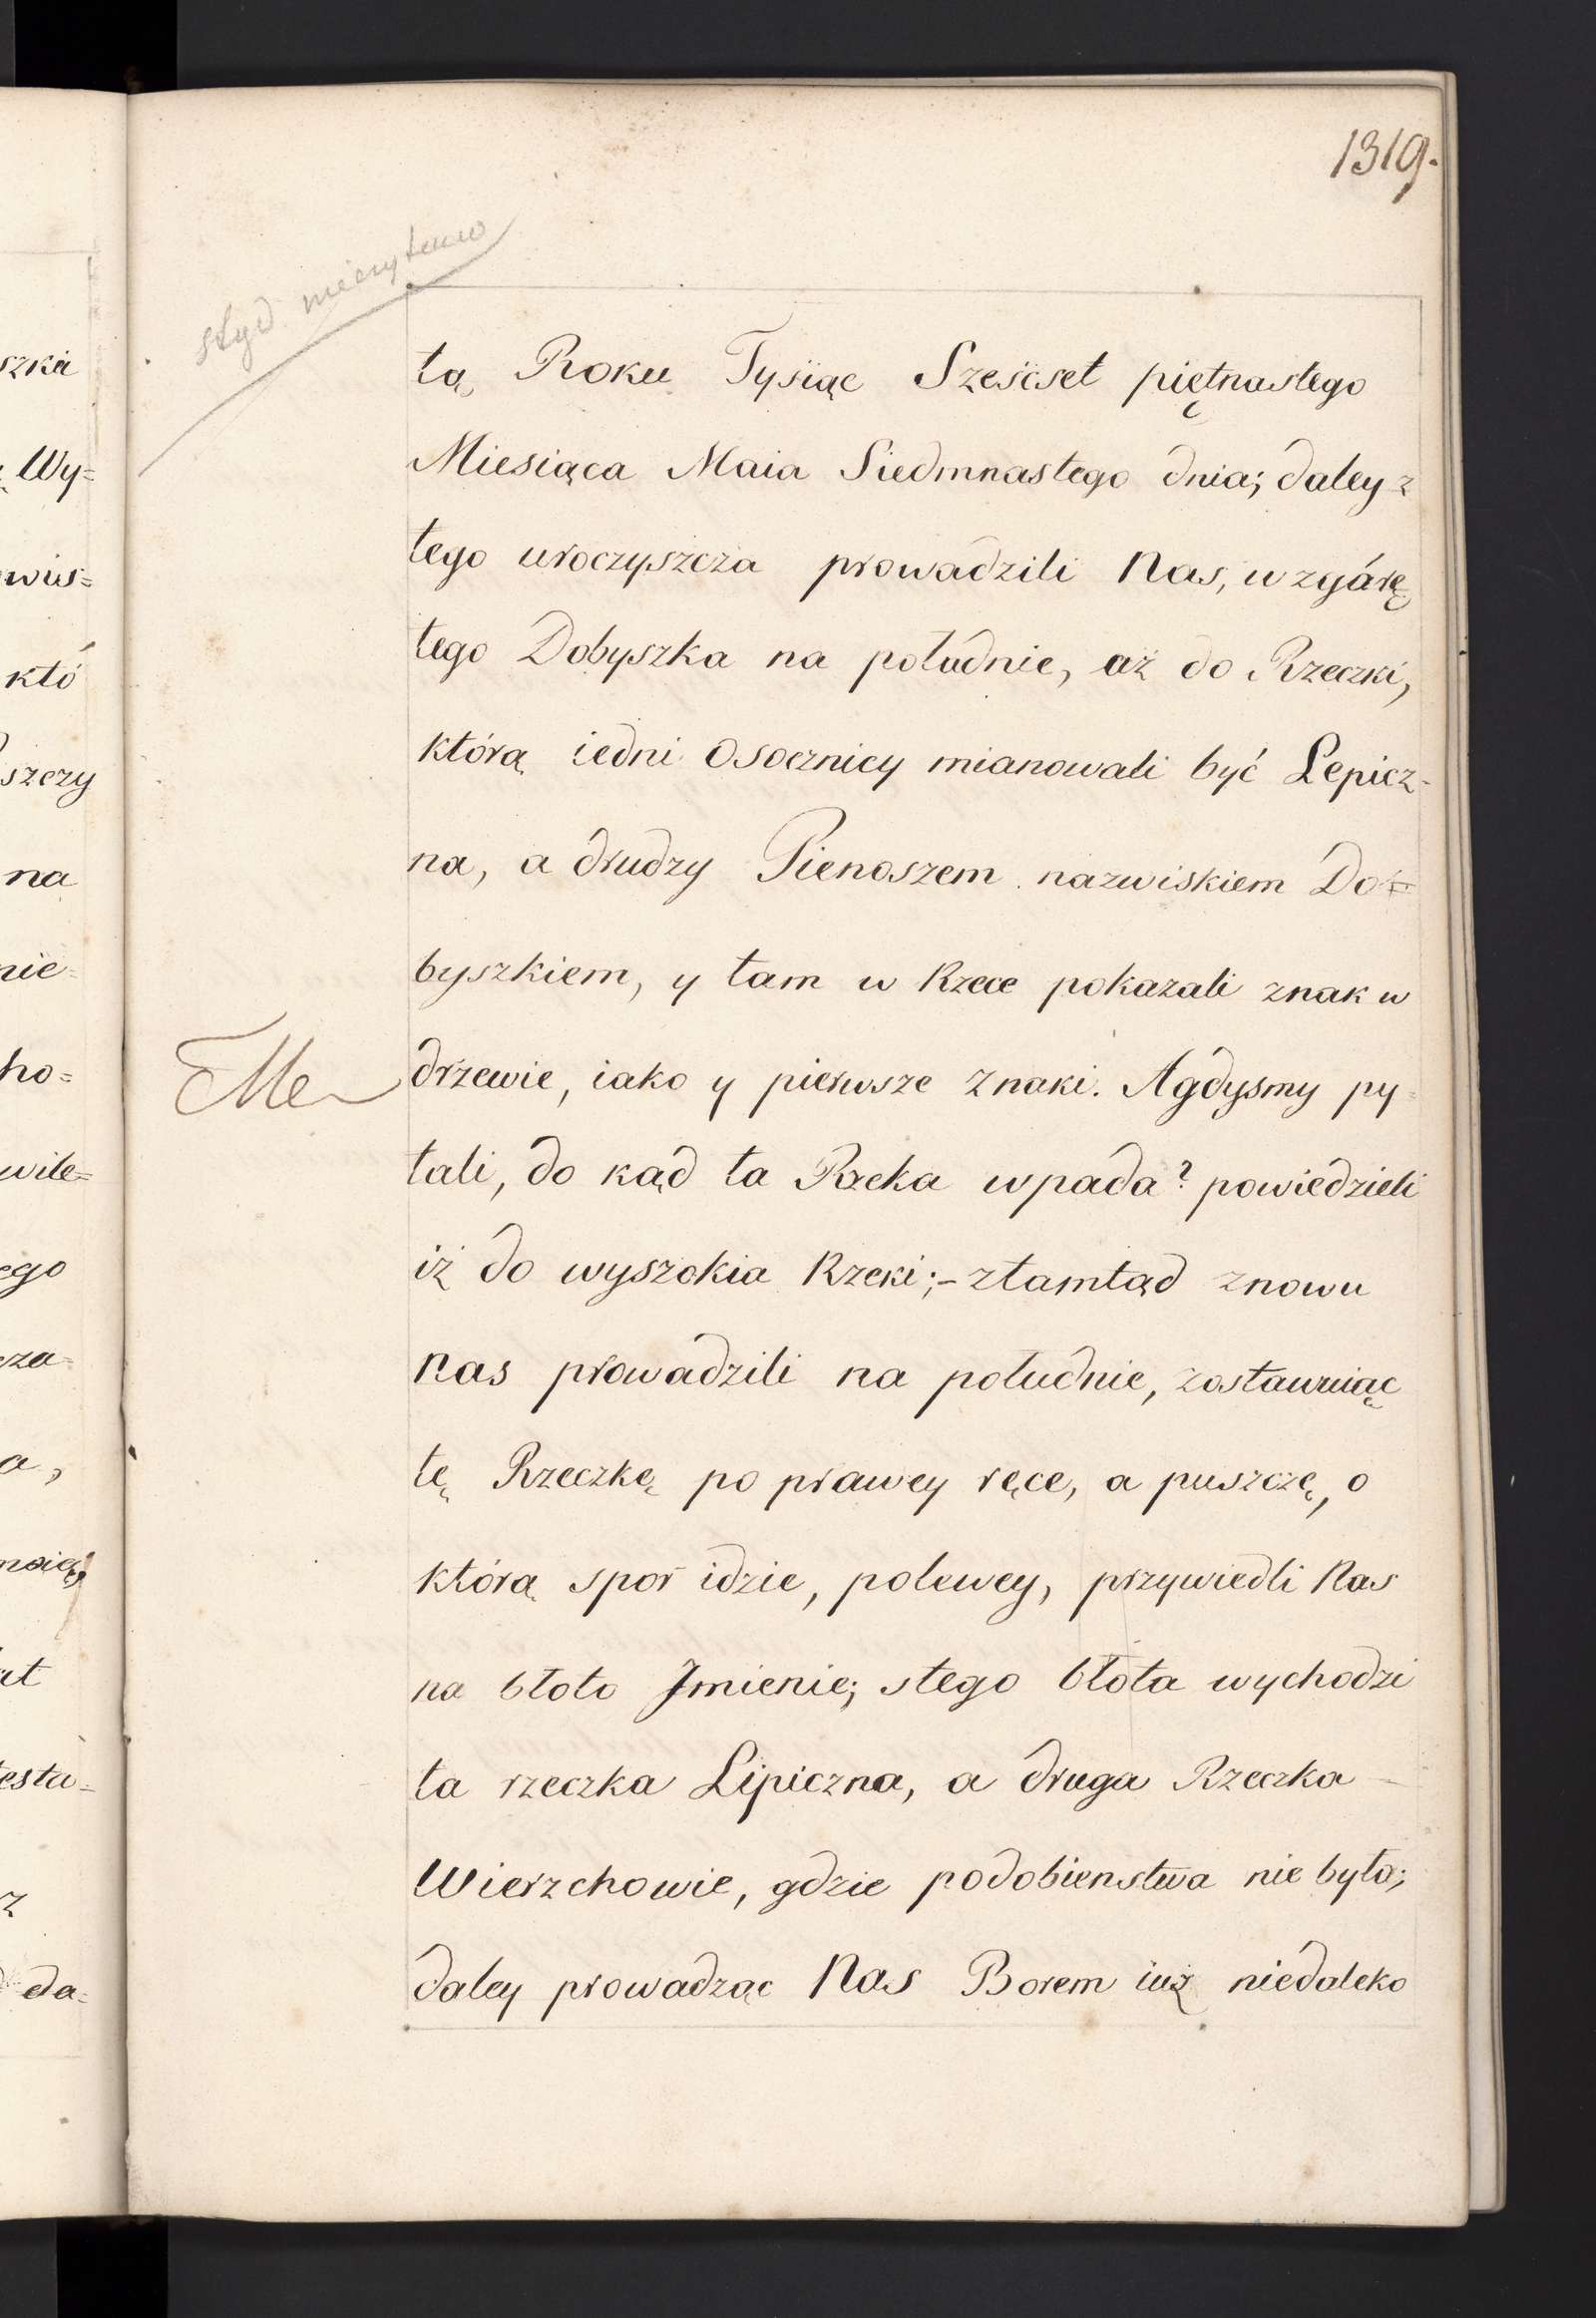 1319.
tą, Roku Tysiąc Sześćset piętnastego
Miesiąca Maia Siedmnastego dnia; daley z
tego uroczyszcza prowadzili Nas, wzgórę
tego Dobyszka na południe, aż do Rzeczki,
którą iedni Osocznicy mianowali być Lepicz-
na, a drudzy Pienoszem nazwiskiem Do=
byszkiem, y tam w Rzece pokazali znak w
drzewie, iako y pierwsze znaki. Agdysmy py=
tali, do kąd ta Rzeka wpada? powiedzieli
iż do wyszokia Rzeki;- ztamtąd znowu
nas prowadzili na południe, zostawuiąc
tę Rzeczkę po prawey ręce, a puszczę, o
którą spor idzie, polewey, przywiedli Nas
na błoto Jmienie; stego błota wychodzi
ta rzeczka Lipiczna, a druga Rzeczka
Wierzchowie, gdzie podobienstwa nie było;
daley prowadząc Nas Borem iuż niedaleko
szka
Wy=
wis=
któ
szczy
na
nie=
ho=
wile=
ego
cza=
a,
at
testa=
z
da=